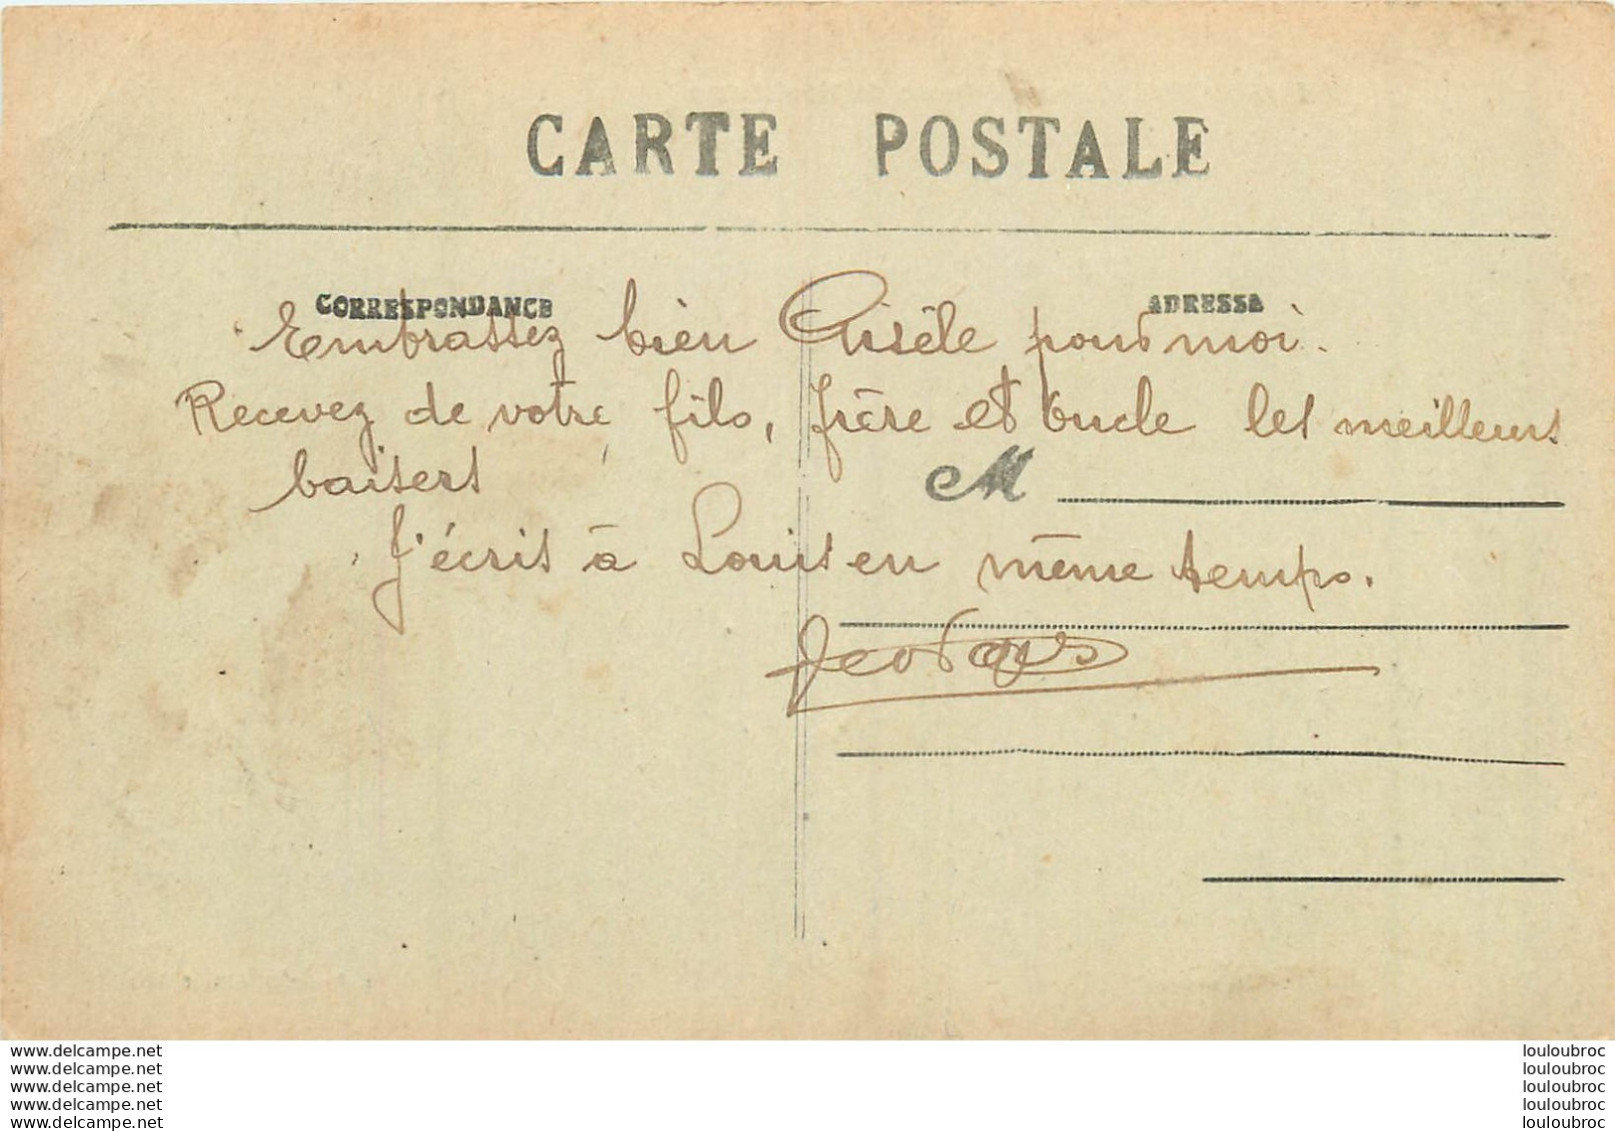 CARTE POSTALE
CORRESPONDANCE
ADRESSE
Embrassez bien Gisèle pour moi.
Recevez de votre fils, frère et oncle les meilleurs
baisers
M
J'écris à Louis en même temps.
Georges
www.delcampe.net
www.delcampe.net
www.delcampe.net
www.delcampe.net
www.delcampe.net
louloubroc
louloubroc
louloubroc
louloubroc
louloubroc